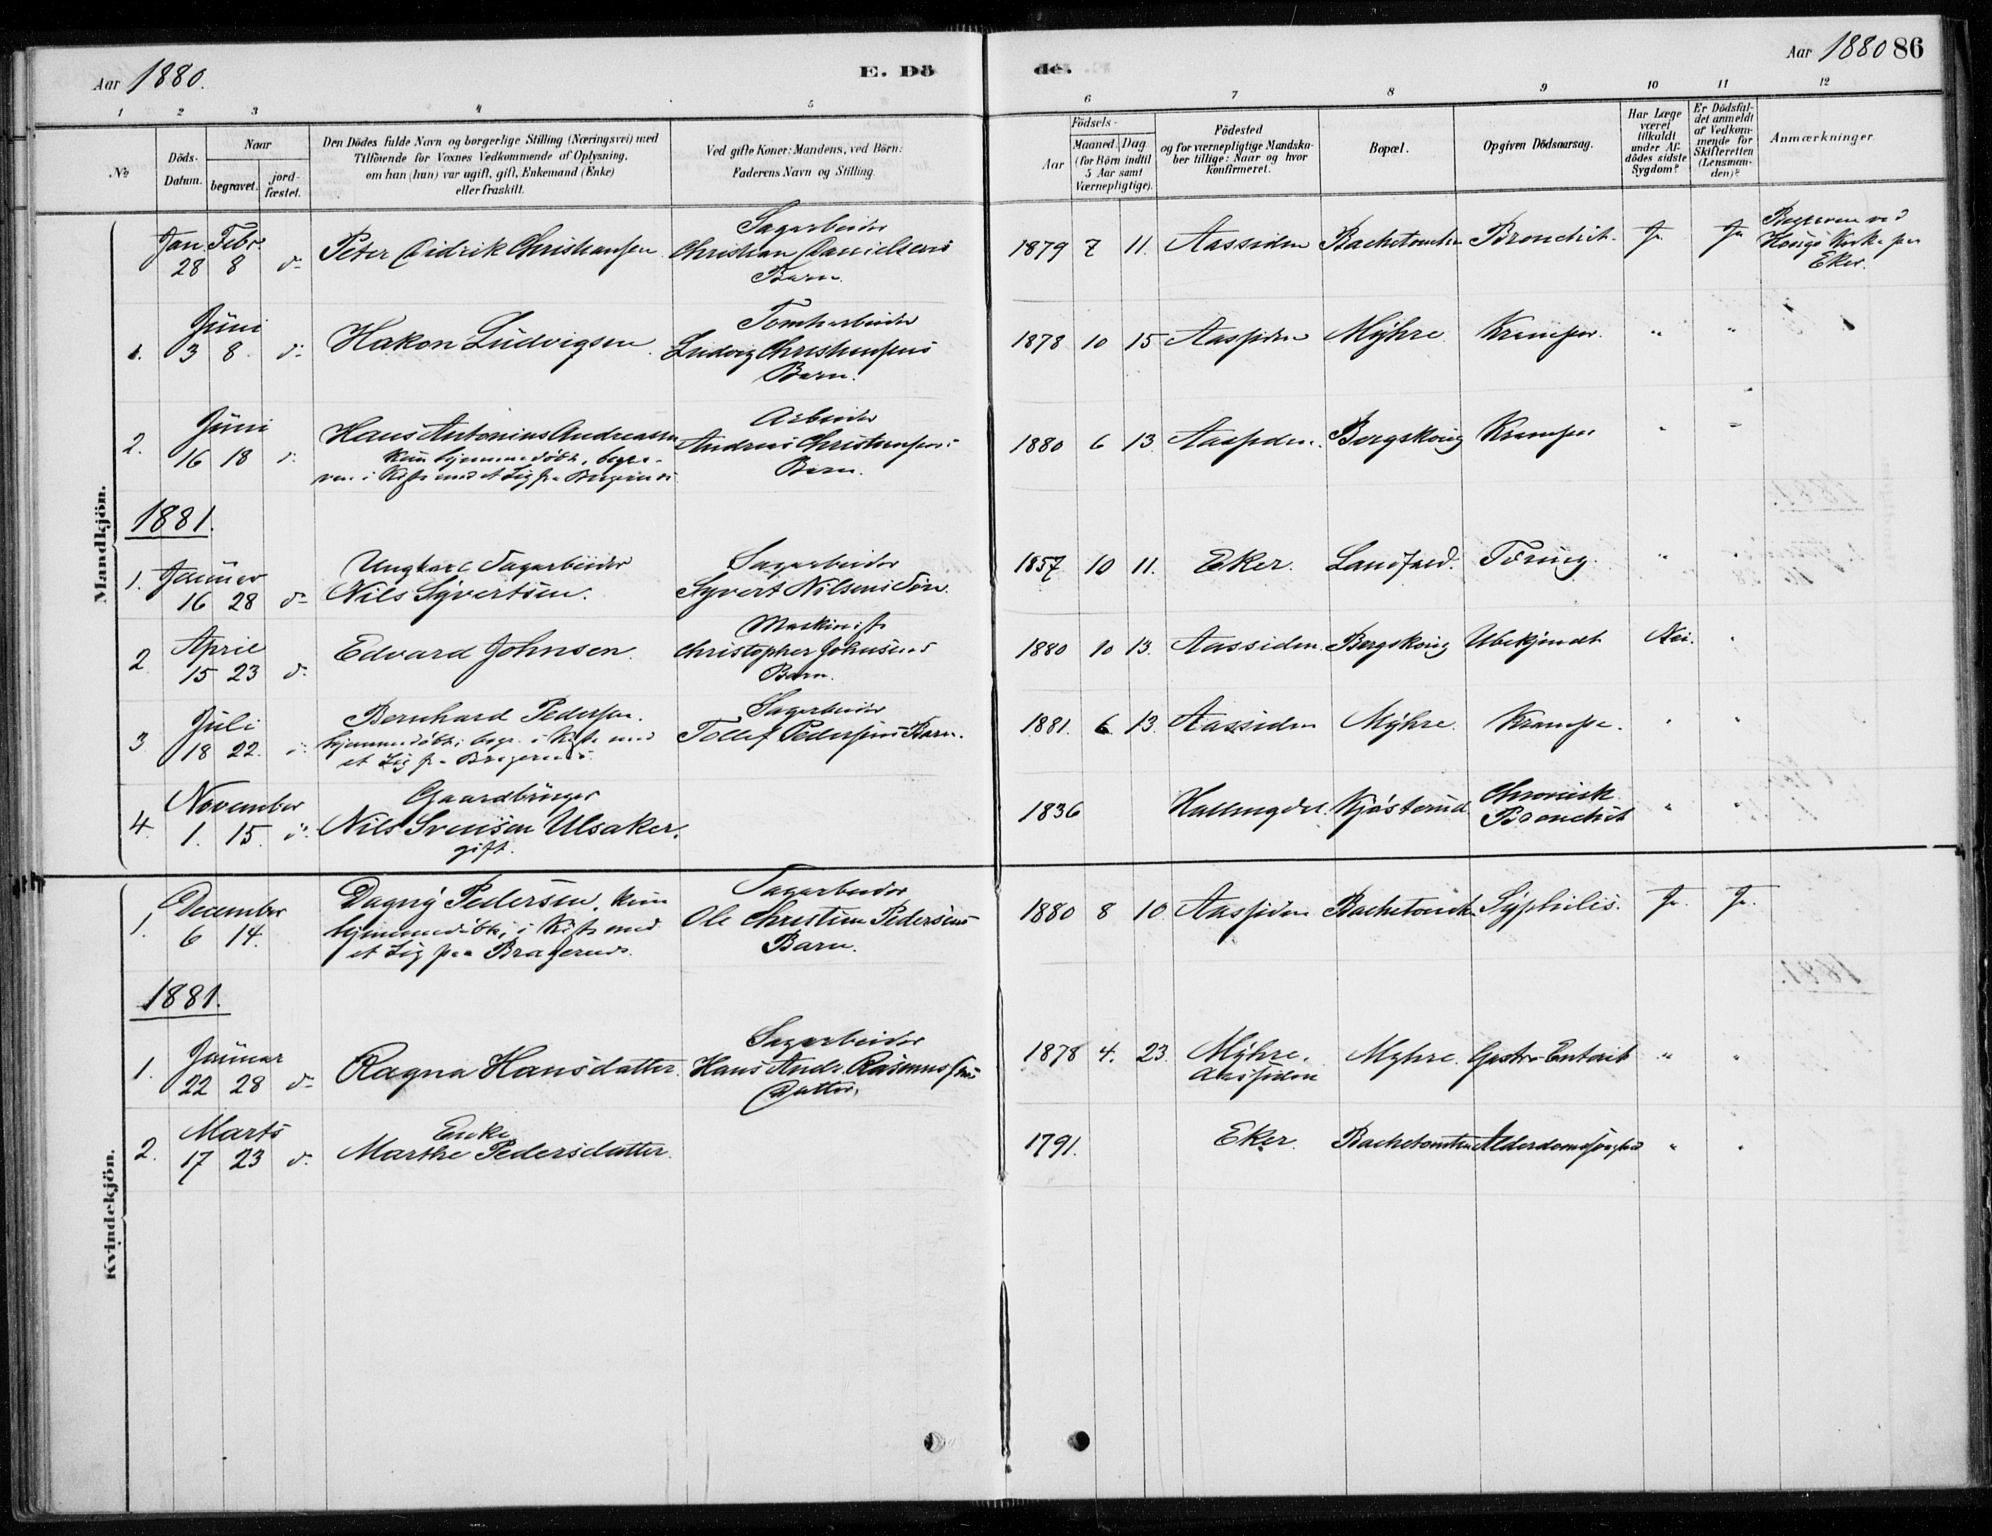 Aar 1880.
E. Dö
de.
Aar 1880 86
1 2 3 4 5 6 7 8 9 10 11 12
No
Döds-Datum.
Naar
begravet.
jord-fæstet.
Den Dödes fulde Navn og borgerlige Stilling (Næringsvei) med
Tilföiende for Voxnes Vedkommende af Oplysning,
om han (hun) var ugift, gift, Enkemand (Enke)
eller fraskilt.
Ved gifte Koner: Mandens, ved Börn:
Faderens Navn og Stilling.
Födsels-
Aar
Maaned. Dag
(for Börn indtil
5 Aar samt
Værnepligtige).
Födested
og for værnepligtige Mandska-
ber tillige: Naar og hvor
konfirmeret.
Bopæl.
Opgiven Dödsaarsag.
Har Læge
været
tilkaldt
under Af-
dödes sidste
Sygdom?
Er Dödsfal-
det anmeldt
af Vedkom-
mende for
Skifteretten
(Lensman-
den)?
Anmærkninger.
Mandkjön.
Jan. Febr.
28 8 do
Peter Didrik Christiansen
Sagarbeider
Christian Danielsens
Barn.
1879 7 11. Aassiden Bachetomten Bronchit. Ja Ja
Begraven ved
Hougs Kirke paa
Eker.
Juni
1. 3 8. do
Hakon Ludvigsen
Tomtearbeider
Ludvig Christensens
Barn.
1878 10 15 Aassiden Myhre Kramper. " "
Juni
2. 16 18
Hans Antonius Andreassen
kun hjemmedöbt, begra-
ven i Kiste med et Lig fra Bragernes
Arbeider
Andreas Christensens
Barn.
1880 6 13. Aassiden. Bergskoug Kramper " "
1881.
1. Januar
16 28 do
Ungkarl Sagarbeider
Nils Syvertsen.
Sagarbeider
Syvert Nilsens Sön.
1857 10 11. Eker. Landfald. Tæring. "
2. April
15 23 do
Edvard Johnsen.
Maskinist
Christopher Johnsens
Barn.
1880 10 13. Aassiden. Bergskoug Ubekjendt Nei. "
3 Juli
18 22.
Bernhard Pedersen.
hjemmedöbt; begr. i Kiste med
et Lig fra Bragernes
Sagarbeider
Tollef Pedersens Barn.
1881. 6. 13. Aassiden Myhre. Krampe. " "
4. November
1. 15.
Gaardbruger
Nils Svensen Ulsaker.
gift.
1836 Hallingdal. Kjösterud Chronisk
Bronchit " "
Kvindekjön.
1. December
6 14.
Dagny Pedersen, kun
hjemmedöbt, i Kiste med
et Lig fra Bragernes.
Sagarbeider
Ole Christian Pedersens
Barn.
1880 8 10. Aassiden Bachetomten Syphilis. Ja. Ja.
1881.
1. Januar
22 28 do
Ragna Hansdatter.
Sagarbeider
Hans Andr. Rasmussens
Datter.
1878 4. 23. Myhre.
Aassiden Myhre. Gastro-Enterit " "
2. Marts
17 23 do
Enke
Marthe Pedersdatter.
1791. Eker. Bachetomten Alderdomssvaghed " "